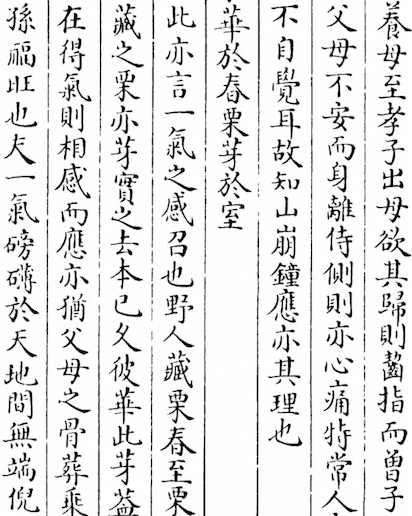 養母至孝子出母欲其歸則齧指而曽子
父母不安而身離侍側則亦心痛特常人
不自覺耳故知山崩鐘應亦其理也
華於春栗芽於室
此亦言一氣之感召也野人藏栗春至栗
藏之栗亦芽實之去本已久彼華此芽葢
在得氣則相感而應亦猶父母之骨葬乘
孫福旺也夫一氣磅礴於天地間無端倪